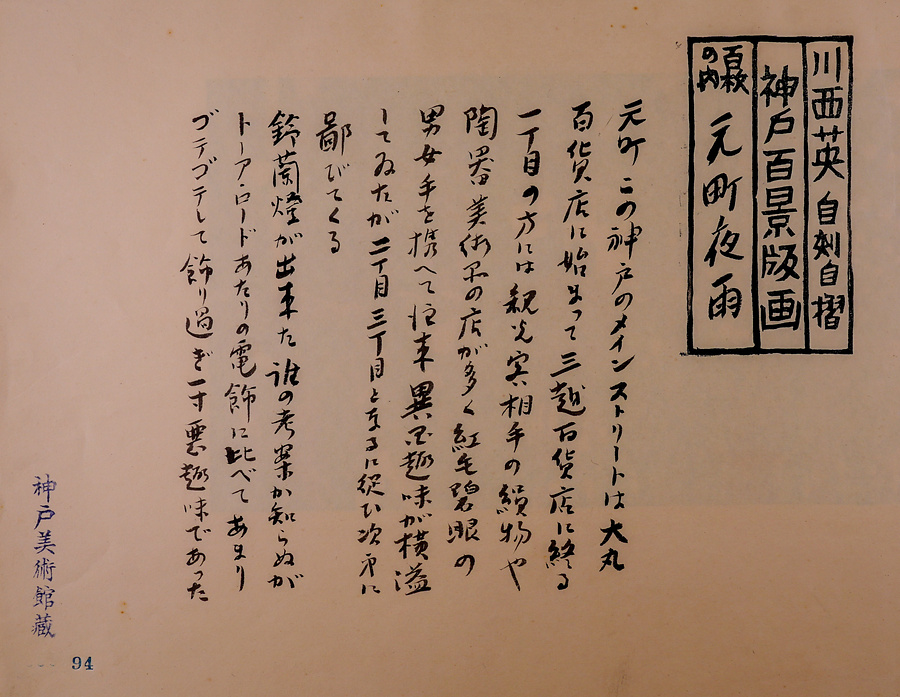 川西英 自刻自摺
神戸百景版画
百枚の内 元町夜雨
元町 この神戸のメインストリートは大丸
百貨店に始まって三越百貨店に終る
一丁目の方には観光客相手の絹物や
陶器美術品の店が多く紅毛碧眼の
男女手を携へて往来 異国趣味が横溢
してゐたが二丁目三丁目となるに従ひ次第に
鄙びてくる
鈴蘭燈が出来た 誰の考案か知らぬが
トーア・ロードあたりの電飾に比べてあまり
ゴテゴテして飾り過ぎ一寸悪趣味であった
神戸美術館蔵
94